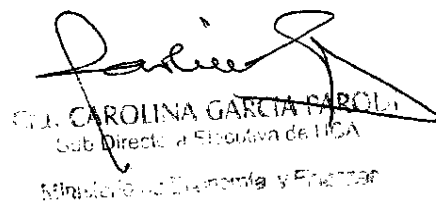 Carolina G
Cra. CAROLINA GARCIA PARODI
Sub Directora Ejecutiva de UGA
Ministerio de Economía y Finanzas